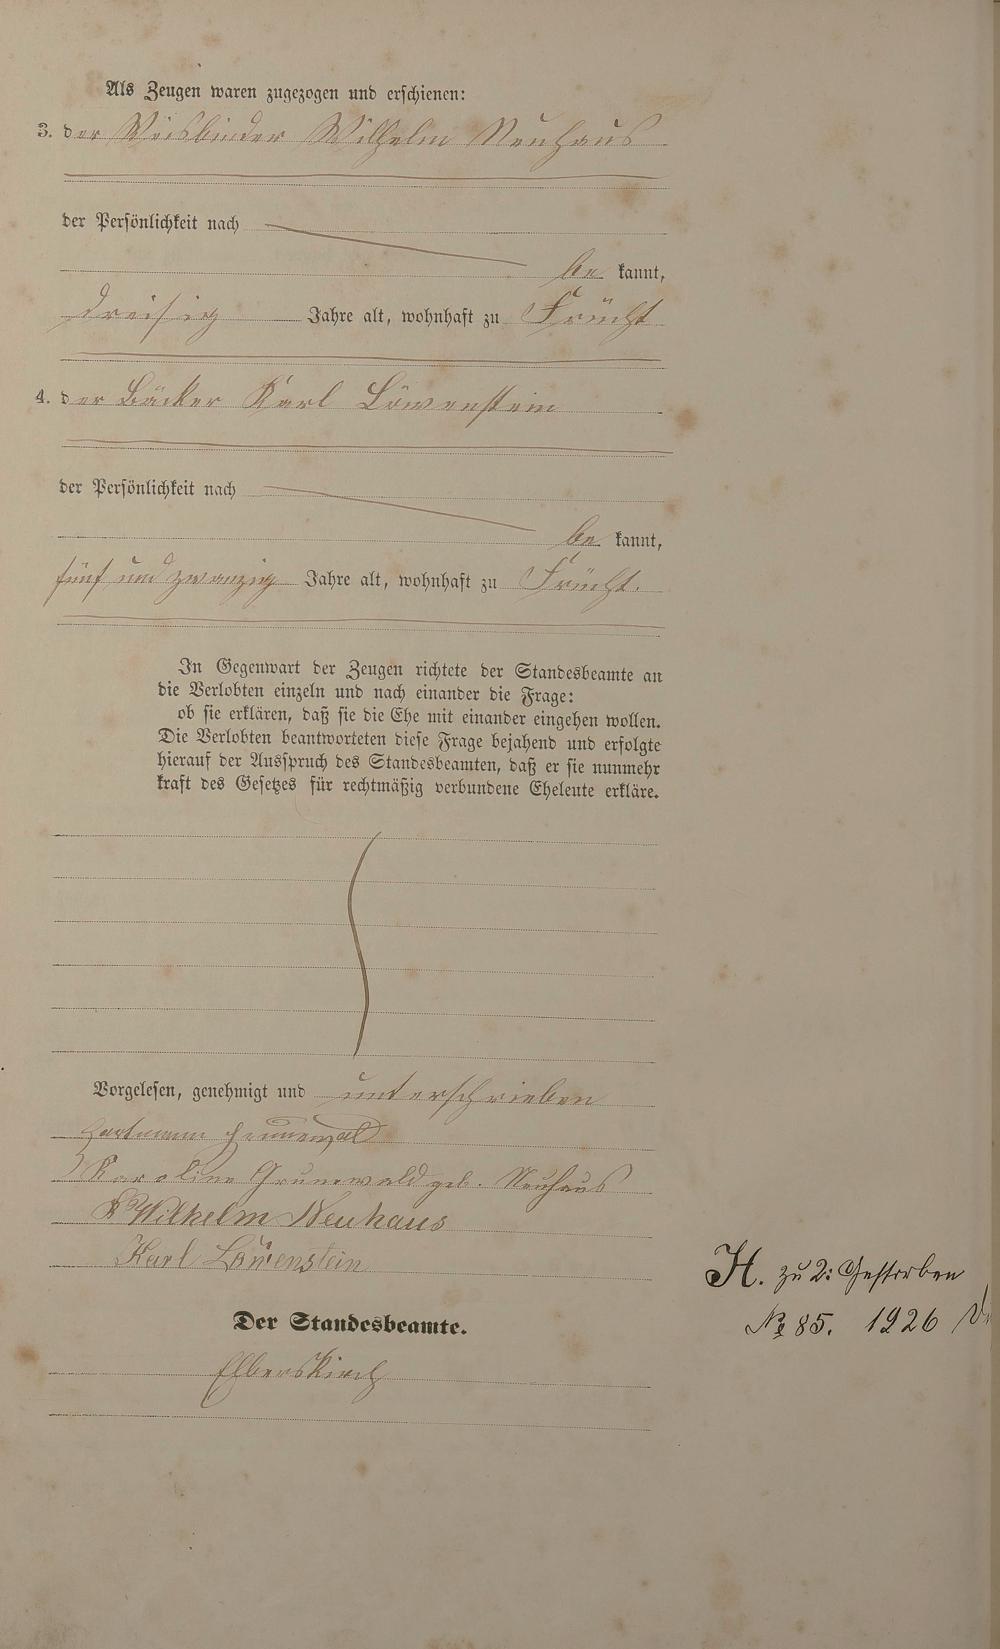 Als Zeugen waren zugezogen und erschienen:
3. der Weisbinder Wilhelm Neuhaus
der Persönlichkeit nach
be kannt,
dreisig Jahre alt, wohnhaft zu Frücht
4. der Bäcker Karl Löwenstein
der Persönlichkeit nach
be kannt,
fünf und zwanzig Jahre alt, wohnhaft zu Frücht.
In Gegenwart der Zeugen richtete der Standesbeamte an
die Verlobten einzeln und nach einander die Frage:
ob sie erklären, daß sie die Ehe mit einander eingehen wollen.
Die Verlobten beantworteten diese Frage bejahend und erfolgte
hierauf der Ausspruch des Standesbeamten, daß er sie nunmehr
kraft des Gesetzes für rechtmäßig verbundene Eheleute erkläre.
Vorgelesen, genehmigt und unterschrieben
Karoline Grunewald geb. Neuhaus
Wilhelm Neuhaus
Karl Löwenstein
Der Standesbeamte.
Elberskirch
H. zu 2: Gestorben
№ 85. 1926